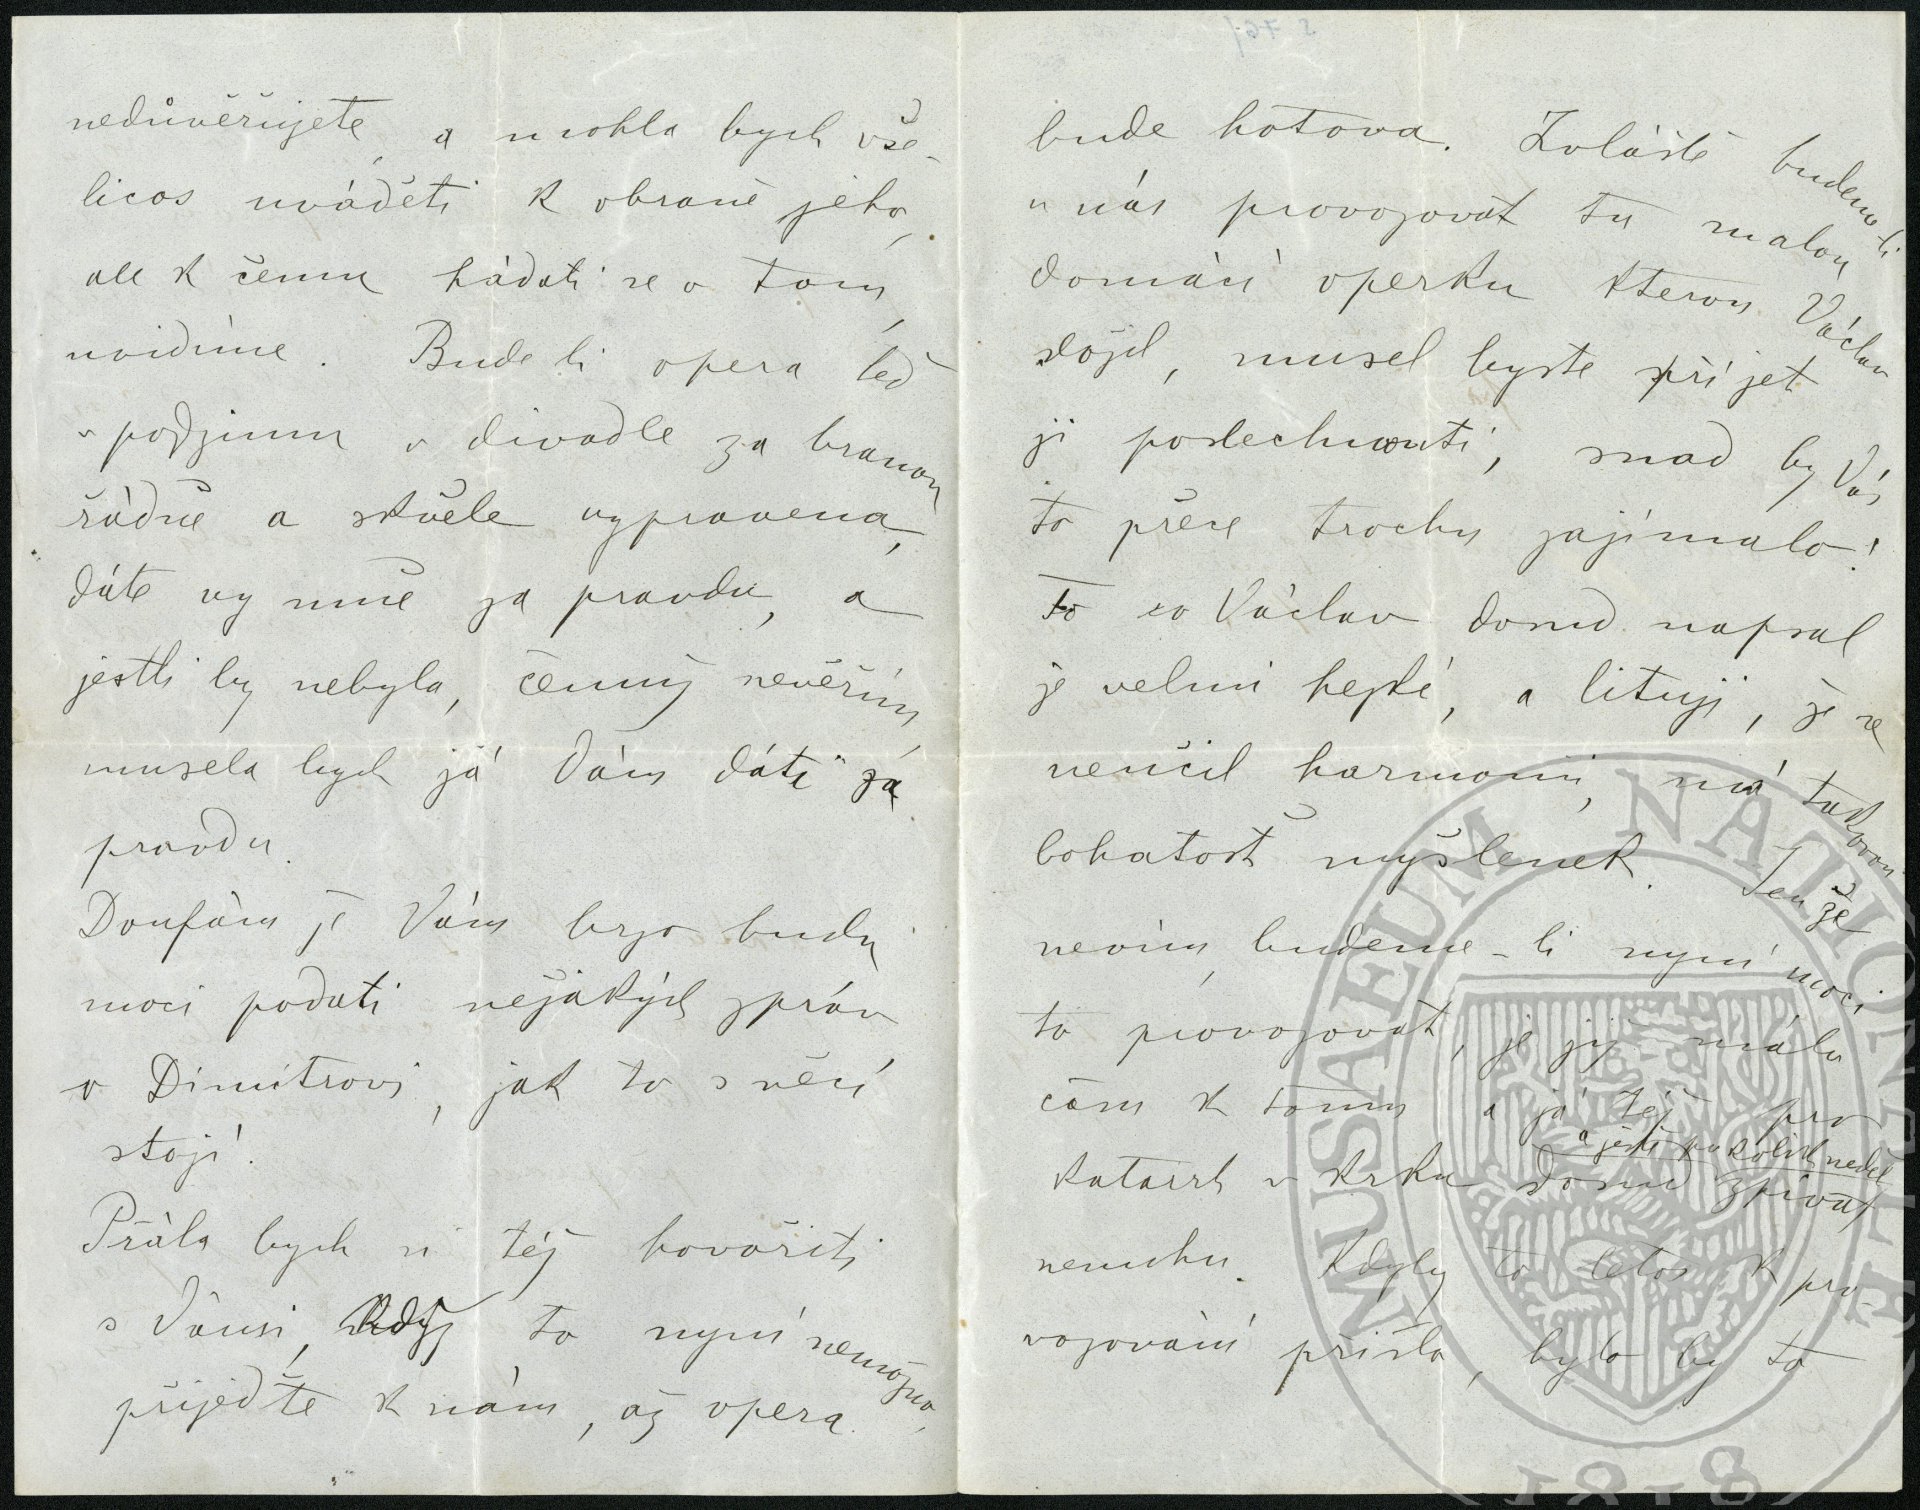 nedůvěřujete, a mohla bych vše-
licos uváděti k obraně jeho,
ale k čemu hádati se o tom,
uvidíme. Bude li opera teď
v podzimu v divadle za branou
řádně a skvěle vypravena,
dáte vy mně za pravdu, a
jestli by nebyla, čemuž nevěřím,
musela bych já Vám dáti za
pravdu.
Doufám že Vám brzo budu
moci podati nějakých zpráv
o Dimitrovi, jak to s věcí
stojí.
Přála bych si též hovořiti
s Vámi, když to nyní nemožno,
přijeďte k nám, až opera
bude hotova. Zvláště budeme-li
u nás provozovat tu malou
domácí operku kterou Václav
složil, musel byste přijet
ji poslechnouti, snad by Vás
to přece trochu zajímalo!
To co Václav dosud napsal
je velmi hezké, a lituji, že se
neučil harmonii, má takovou
bohatost myšlenek. Jen že
nevím, budeme-li nyní moci
to provozovat, je již málo
času k tomu a já též pro
katarrh v krku dosud a ještě po kolik neděl zpívat
nemohu. Kdyby to letos k pro-
vozování přišlo, bylo by to
MUSAEUM NATIONALE
1818